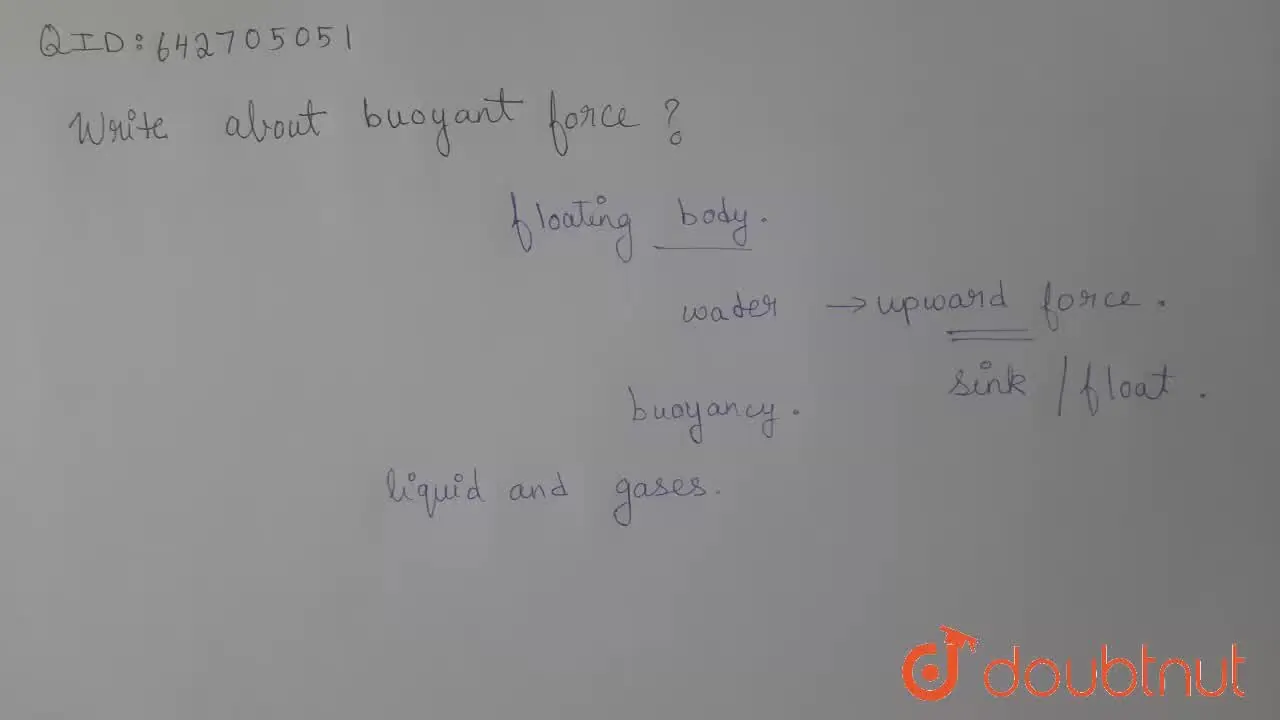 QID: 642705051
Write about buoyant force ?
floating body.
water → upward force.
sink / float.
buoyancy.
liquid and gases.
doubtnut